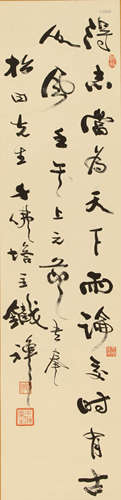 得志當為天下雨論交時有古
人風壬子上元節書奉
松田先生 七佛塔主鐵禪